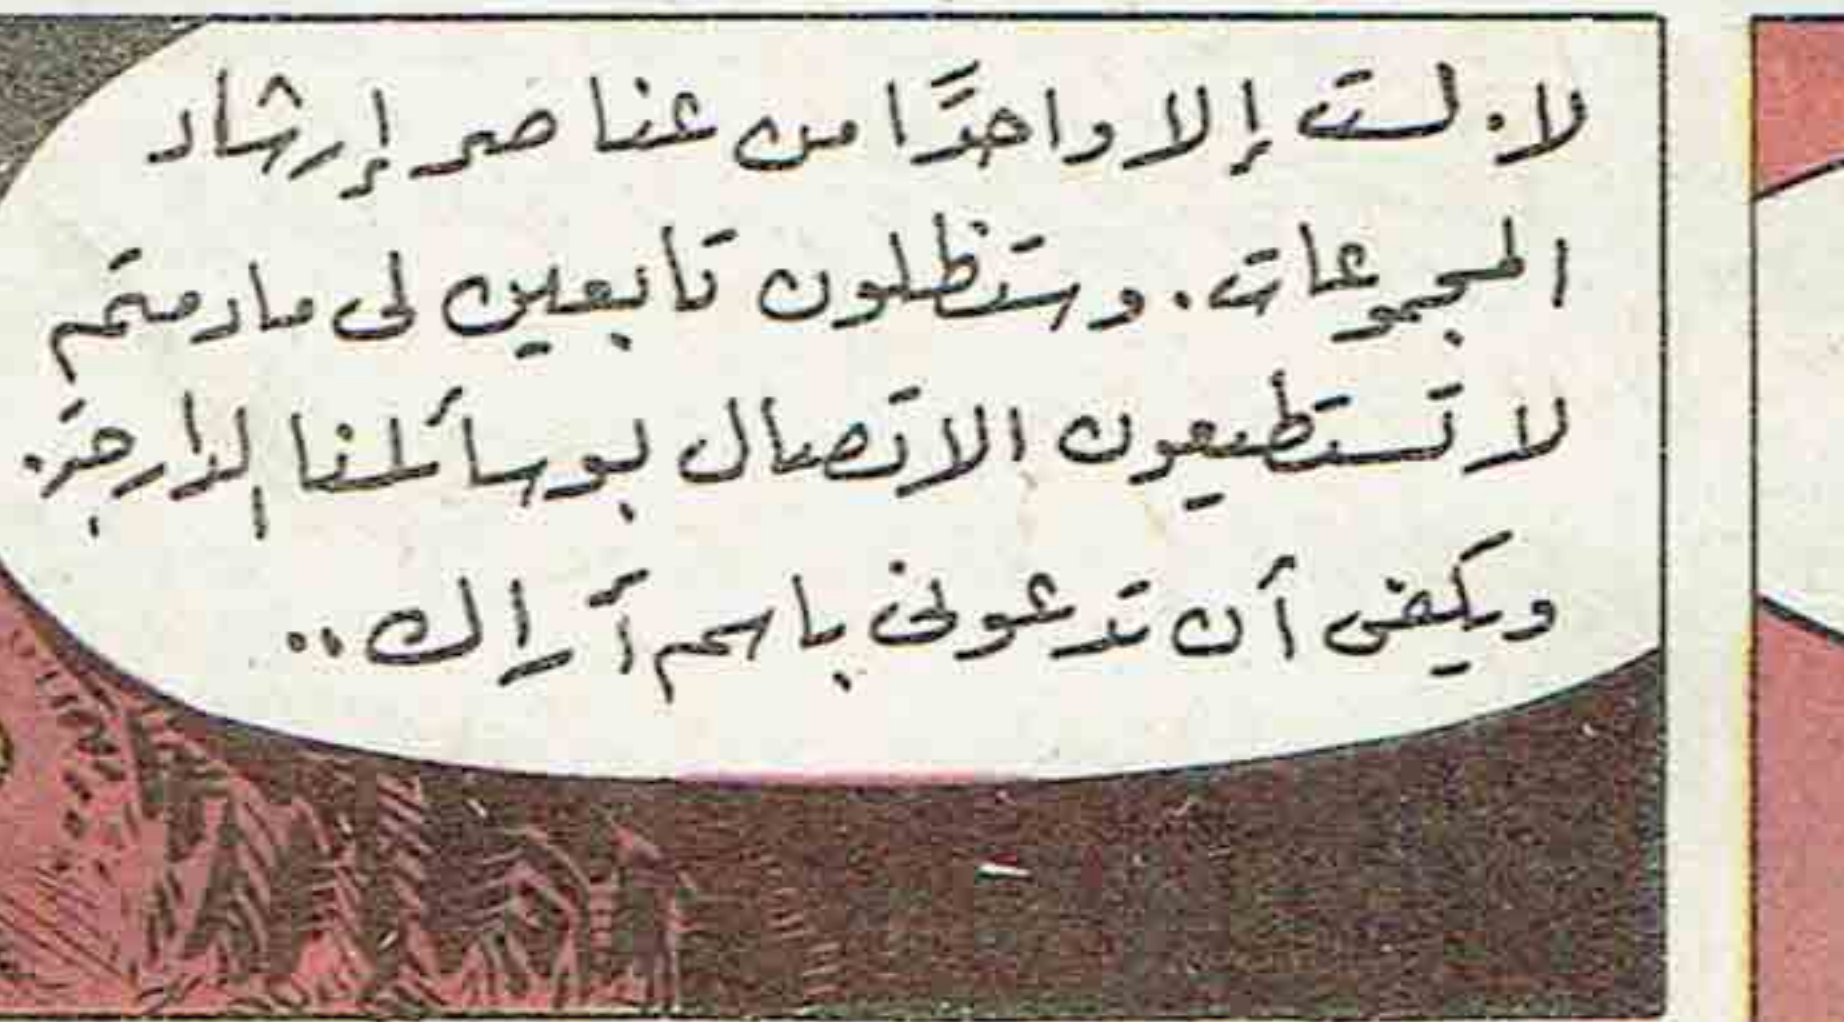 لا. لست إلا واحدًا من عناصر إرشاد
المجموعات. وستظلون تابعين لى مادمتم
لا تستطيعون الاتصال بوسائلنا الدارجة.
ويكفى أن تدعونى باسم آراك..